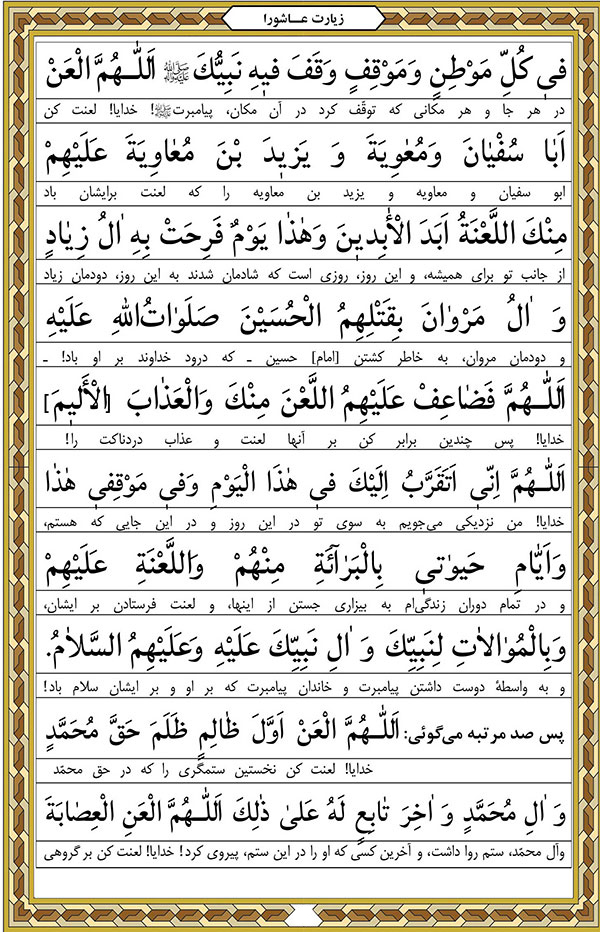 زیارت عـــاشورا
فی کُلِّ مَوْطِنٍ وَمَوْقِفٍ وَقَفَ فیهِ نَبِیُّكَ ﷺ اَللّٰـهُمَّ الْعَنْ
در هر جا و هر مکانی که توقّف کرد در آن مکان، پیامبرت ﷺ! خدایا! لعنت کن
اَبٰا سُفْیٰانَ وَمُعٰوِیَةَ وَ یَزیدَ بْنَ مُعٰاوِیَةَ عَلَیْهِمْ
ابو سفیان و معاویه و یزید بن معاویه را که لعنت برایشان باد
مِنْكَ اللَّعْنَةُ اَبَدَ الْاٰبِدینَ وَهٰذٰا یَوْمٌ فَرِحَتْ بِهِ اٰلُ زِیٰادٍ
از جانب تو برای همیشه، و این روز، روزی است که شادمان شدند به این روز، دودمان زیاد
وَ اٰلُ مَرْوٰانَ بِقَتْلِهِمُ الْحُسَیْنَ صَلَوٰاتُ‌اللهِ عَلَیْهِ
و دودمان مروان، به خاطر کشتن [امام] حسین ـ که درود خداوند بر او باد! ـ
اَللّٰـهُمَّ فَضٰاعِفْ عَلَیْهِمُ اللَّعْنَ مِنْكَ وَالْعَذٰابَ [الْأَلیمَ]
خدایا! پس چندین برابر کن بر آنها لعنت و عذاب دردناکت را!
اَللّٰـهُمَّ اِنّی اَتَقَرَّبُ اِلَیْكَ فی هٰذَا الْیَوْمِ وَفی مَوْقِفی هٰذٰا
خدایا! من نزدیکی می‌جویم به سوی تو در این روز و در این جایی که هستم،
وَاَیّٰامِ حَیوٰتی بِالْبَرٰآئَةِ مِنْهُمْ وَاللَّعْنَةِ عَلَیْهِمْ
و در تمام دوران زندگی‌ام به بیزاری جستن از اینها، و لعنت فرستادن بر ایشان،
وَبِالْمُوٰالاٰتِ لِنَبِیِّكَ وَ اٰلِ نَبِیِّكَ عَلَیْهِ وَعَلَیْهِمُ السَّلاٰمُ.
و به واسطهٔ دوست داشتن پیامبرت و خاندان پیامبرت که بر او و بر ایشان سلام باد!
پس صد مرتبه می‌گوئی: اَللّٰـهُمَّ الْعَنْ اَوَّلَ ظٰالِمٍ ظَلَمَ حَقَّ مُحَمَّدٍ
خدایا! لعنت کن نخستین ستمگری را که در حق محمّد
وَ اٰلِ مُحَمَّدٍ وَ اٰخِرَ تٰابِعٍ لَهُ عَلیٰ ذٰلِكَ اَللّٰـهُمَّ الْعَنِ الْعِصٰابَةَ
وآل محمّد، ستم روا داشت، و آخرین کسی که او را در این ستم، پیروی کرد! خدایا! لعنت کن بر گروهی